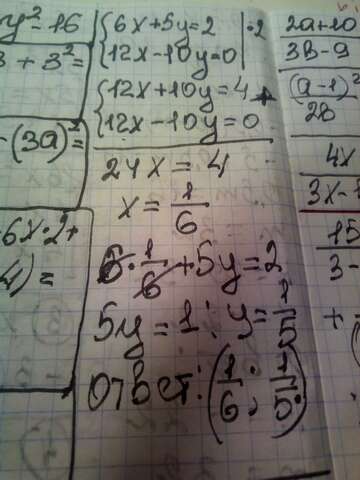 y²-16
3 + 3² =
-(3a)² =
-6x·2+
4) =
{6x+5y=2 |·2
{12x-10y=0
{12x+10y=4 +
{12x-10y=0
24x = 4
x = 1/6
6·1/6+5y=2
5y=1; y=1/5
ответ: (1/6; 1/5)
2a+10
3b-9
(a-1)²
2b
4x
3x-
15
3-
+